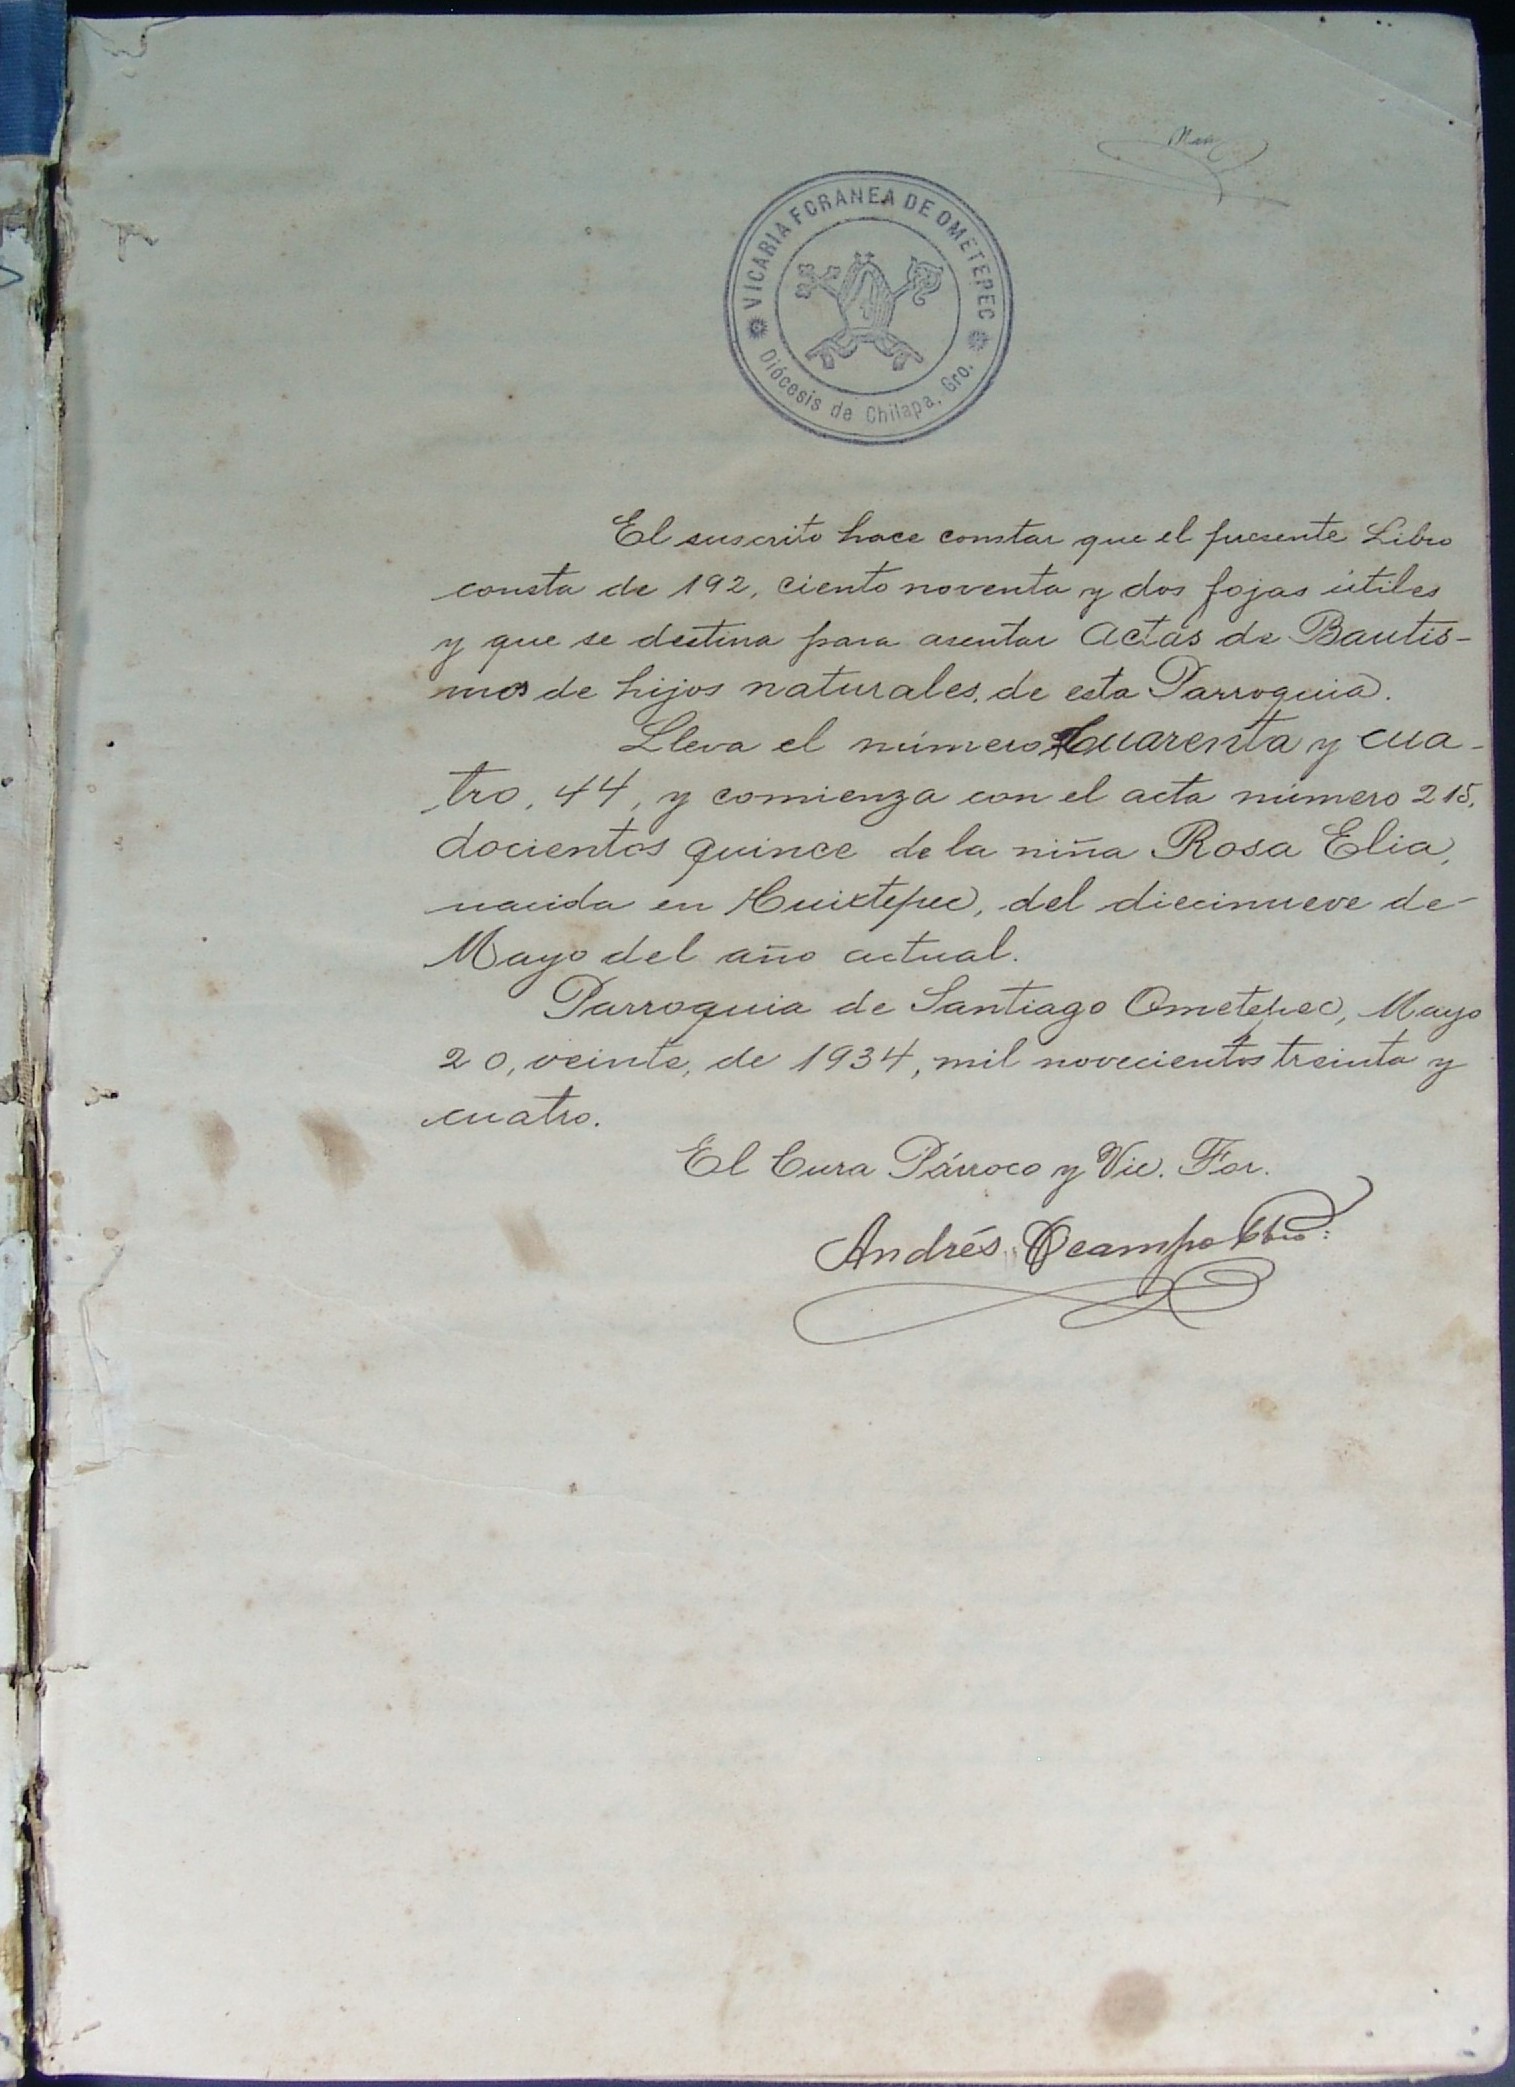 VICARIA FORANEA DE OMETEPEC
Diócesis de Chilapa, Gro.
El suscrito hace constar que el presente Libro
consta de 192, ciento noventa y dos fojas útiles
y que se destina para asentar Actas de Bautis-
mos de hijos naturales, de esta Parroquia.
Lleva el número Cuarenta y cua-
tro, 44, y comienza con el acta número 215,
docientos quince de la niña Rosa Elia,
nacida en Huixtepec, del diecinueve de
Mayo del año actual.
Parroquia de Santiago Ometepec, Mayo
20, veinte, de 1934, mil novecientos treinta y
cuatro.
El Cura Párroco y Vic. For.
Andrés Ocampo Pbro: